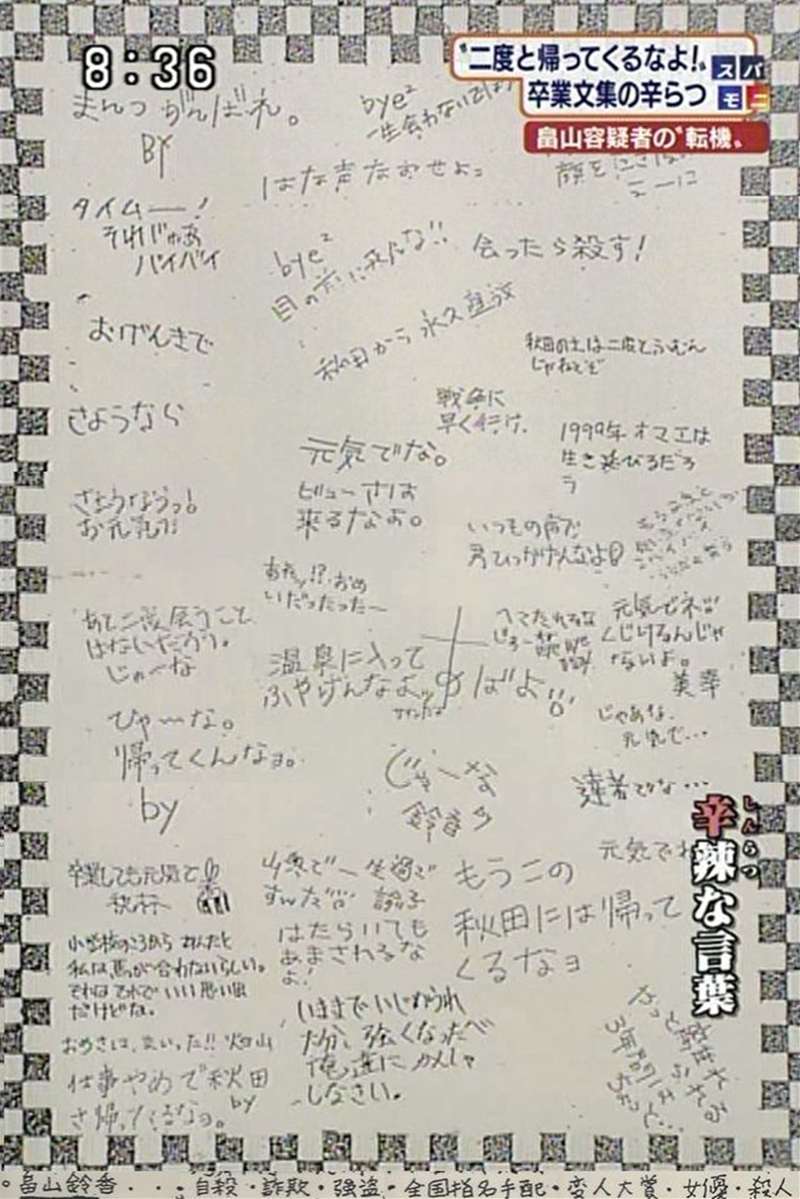 8:36
"二度と帰ってくるなよ!"
卒業文集の辛らつ
スパモニ
畠山容疑者の"転機"
まんつ がんばれ。
BY
bye²
一生会わないでしょう
はな声なおせよ。
タイムー!
それじゃあ
バイバイ
bye²
目の前に来んな!!
会ったら殺す!
おげんきで
秋田から永久追放
秋田の土は二度とふむん
じゃねえぞ
戦争に
早く行け。
さようなら
元気でな。
1999年オマエは
生き延びるだろ
う
さようならっ!
お元気で
来るなよ。
いつもの声で
君ひっかけんなよ
あと二度会うこと
はないだろう。
じゃーな
温泉に入って
ふやけんなよッ
元気でネ
くじけるんじゃ
ないよ。
美幸
ばよ
じゃあな、
元気で…
びゃーな。
帰ってくんなヨ。
by
じゃーな
鈴香
達者でな…
元気でね
卒業しても元気で
山奥で一生過ご
すんだ
もうこの
秋田には帰って
くるなヨ
はたらいても
あまされるな
よ!
小学校のころから あんたと
私は馬が合わないらしい。
それはそれでいい思い出
だけどな。
いままでいじめられ
た分、強くなったべ
俺達にカンしゃ
しなさい。
仕事やめで秋田
さ帰ってくるなヨ。
by
やっと
3年間
辛辣な言葉
しんらつ
。畠山鈴香・・・自殺・詐欺・強盗・全国指名手配・変人大賞・女優・殺人